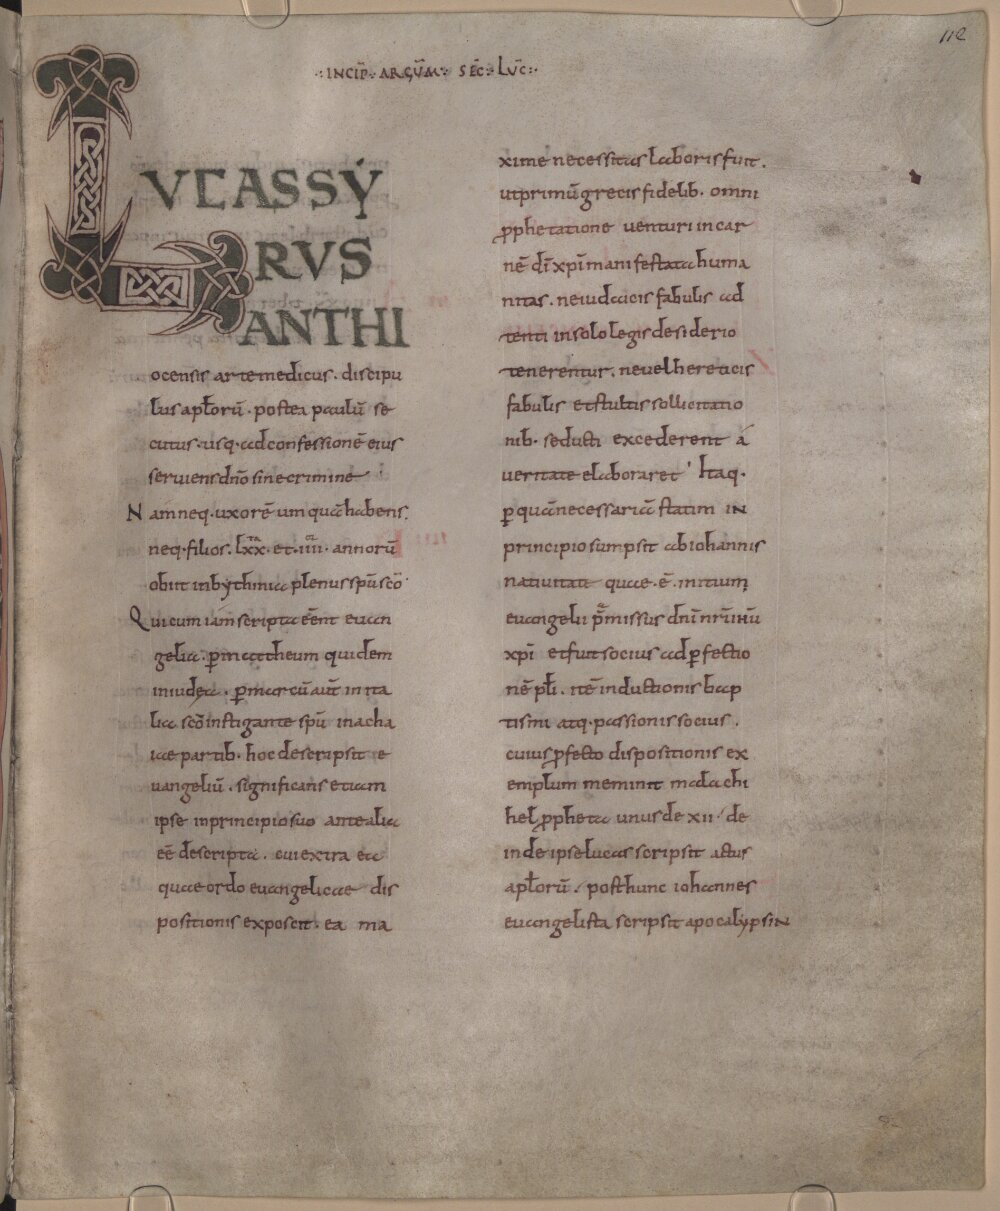 112
·:INCIP̄:· ARGŪM:· SEC̄:· LVC̄:·
LVCAS SẎ
RVS
ANTHI
ocensis arte medicus. discipu
lus aptł̄orū. postea paulū se
cutus. usq· ad confessionē eius
seruiens dn̄o sine crimine
Nam neq· uxorē umquā habens.
neq· filios. lxx. et. iiii. annorū
obiit in bẏthinia plenus spū scō
Qui cum iam scripta eēnt euan
gelia. ꝑ matheum quidem
in iudęa. ꝑ marcū aut̄ in ita
lia scō instigante spū in acha
iae partib· hoc descripsit e
uangeliū. significans etiam
ipse in principio suo ante alia
eē descripta. cui extra ea
quae ordo euangelicae dis
positionis exposcit. ea ma
xime necessitas laboris fuit.
ut primū grecis fidelib· omni
ꝓphetatione uenturi in car
nē dī xpī manifestata huma
nitas. ne iudaicis fabulis ad
tenti in solo legis desiderio
tenerentur. ne uel hereticis
fabulis et stultis sollicitatio
nib· seducti excederent á
ueritate elaboraret Itaq·
ꝑ quā necessariā statim IN
principio sumpsit ab iohannis
natiuitate quae. ē. initium
euangelii p̄missus dn̄i nr̄i ihū
xpī et fuit socius ad ꝑfectio
nē płi. itē inductionis bap
tismi atq· passionis socius.
cuius ꝓfecto dispositionis ex
emplum meminit malachi
hel ꝓpheta unus de xii. de
inde ipse lucas scripsit actus
aptłorū. post hunc iohannes
euangelista scripsit apocalypsiN